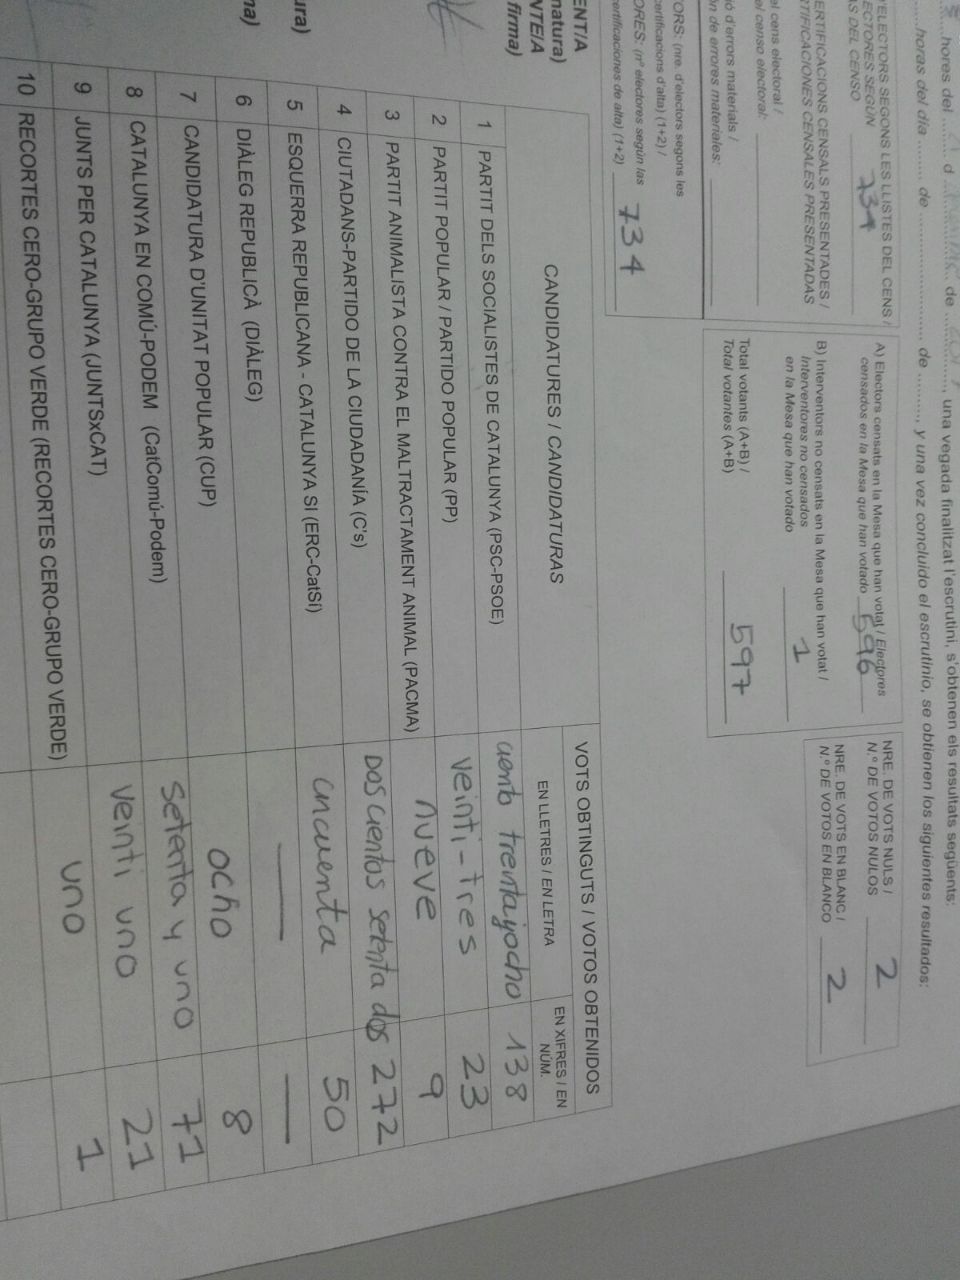 ...hores del ........ d ........ de ........, una vegada finalitzat l'escrutini, s'obtenen els resultats següents:
........horas del día ...... de ........................ de ........, y una vez concluido el escrutinio, se obtienen los siguientes resultados:
'ELECTORS SEGONS LES LLISTES DEL CENS /
ECTORES SEGÚN
AS DEL CENSO 734
ERTIFICACIONS CENSALS PRESENTADES /
RTIFICACIONES CENSALES PRESENTADAS
el cens electoral /
el censo electoral:
ió d'errors materials /
ón de errores materiales:
TORS: (nre. d'electors segons les
certificacions d'alta) (1+2) /
ORES: (nº electores según las
ertificaciones de alta) (1+2) 734
A) Electors censats en la Mesa que han votat / Electores
censados en la Mesa que han votado 596
B) Interventors no censats en la Mesa que han votat /
Interventores no censados
en la Mesa que han votado 1
Total votants (A+B) /
Total votantes (A+B) 597
NRE. DE VOTS NULS /
N.º DE VOTOS NULOS 2
NRE. DE VOTS EN BLANC /
N.º DE VOTOS EN BLANCO 2
ENT/A
natura)
NTE/A
firma)
ura)
na)
CANDIDATURES / CANDIDATURAS
VOTS OBTINGUTS / VOTOS OBTENIDOS
EN LLETRES / EN LETRA
EN XIFRES / EN
NÚM.
1 PARTIT DELS SOCIALISTES DE CATALUNYA (PSC-PSOE) ciento treinta y ocho 138
2 PARTIT POPULAR / PARTIDO POPULAR (PP) veinti-tres 23
3 PARTIT ANIMALISTA CONTRA EL MALTRACTAMENT ANIMAL (PACMA) nueve 9
4 CIUTADANS-PARTIDO DE LA CIUDADANÍA (C's) Doscientos setenta dos 272
5 ESQUERRA REPUBLICANA - CATALUNYA SI (ERC-CatSí) cincuenta 50
6 DIÀLEG REPUBLICÀ (DIÀLEG) — —
7 CANDIDATURA D'UNITAT POPULAR (CUP) ocho 8
8 CATALUNYA EN COMÚ-PODEM (CatComú-Podem) setenta y uno 71
9 JUNTS PER CATALUNYA (JUNTSxCAT) veinti uno 21
10 RECORTES CERO-GRUPO VERDE (RECORTES CERO-GRUPO VERDE) uno 1